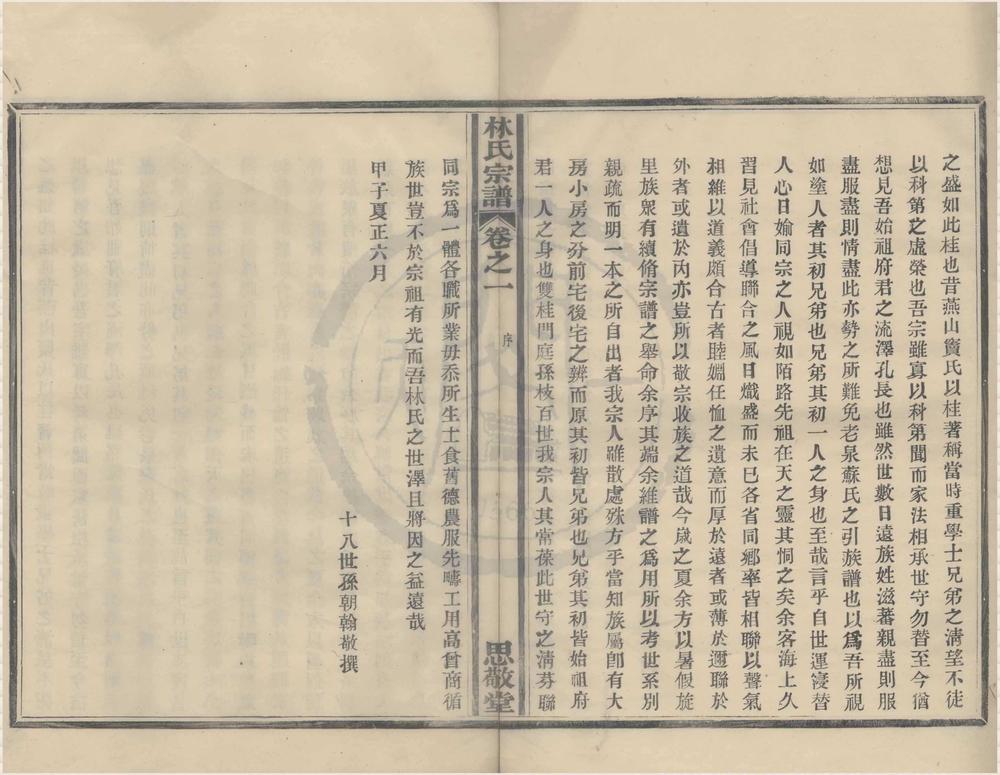 之盛如此桂也昔燕山竇氏以桂著稱當時重學士兄弟之淸望不徒
以科第之虛榮也吾宗雖寘以科第聞而家法相承世守勿替至今猶
想見吾始祖府君之流澤孔長也雖然世數日遠族姓滋蕃親盡則服
盡服盡則情盡此亦勢之所難免老泉蘇氏之引族譜也以爲吾所視
如塗人者其初兄弟也兄弟其初一人之身也至哉言乎自世運寖替
人心日媮同宗之人視如陌路先祖在天之靈其恫之矣余客海上久
習見社會倡導聯合之風日熾盛而未已各省同鄕率皆相聯以聲氣
相維以道義頗合古者睦婣任恤之遺意而厚於遠者或薄於邇聯於
外者或遺於內亦豈所以敬宗收族之道哉今歲之夏余方以暑假旋
里族衆有續脩宗譜之舉命余序其端余維譜之爲用所以考世系別
親疏而明一本之所自出者我宗人雖散處殊方乎當知族屬卽有大
房小房之分前宅後宅之辨而原其初皆兄弟也兄弟其初皆始祖府
君一人之身也雙桂門庭孫枝百世我宗人其常葆此世守之淸芬聯
林氏宗譜 卷之一 序 思敬堂
同宗爲一體各職所業毋忝所生士食舊德農服先疇工用高曾商循
族世豈不於宗祖有光而吾林氏之世澤且將因之益遠哉
甲子夏正六月
十八世孫朝翰敬撰